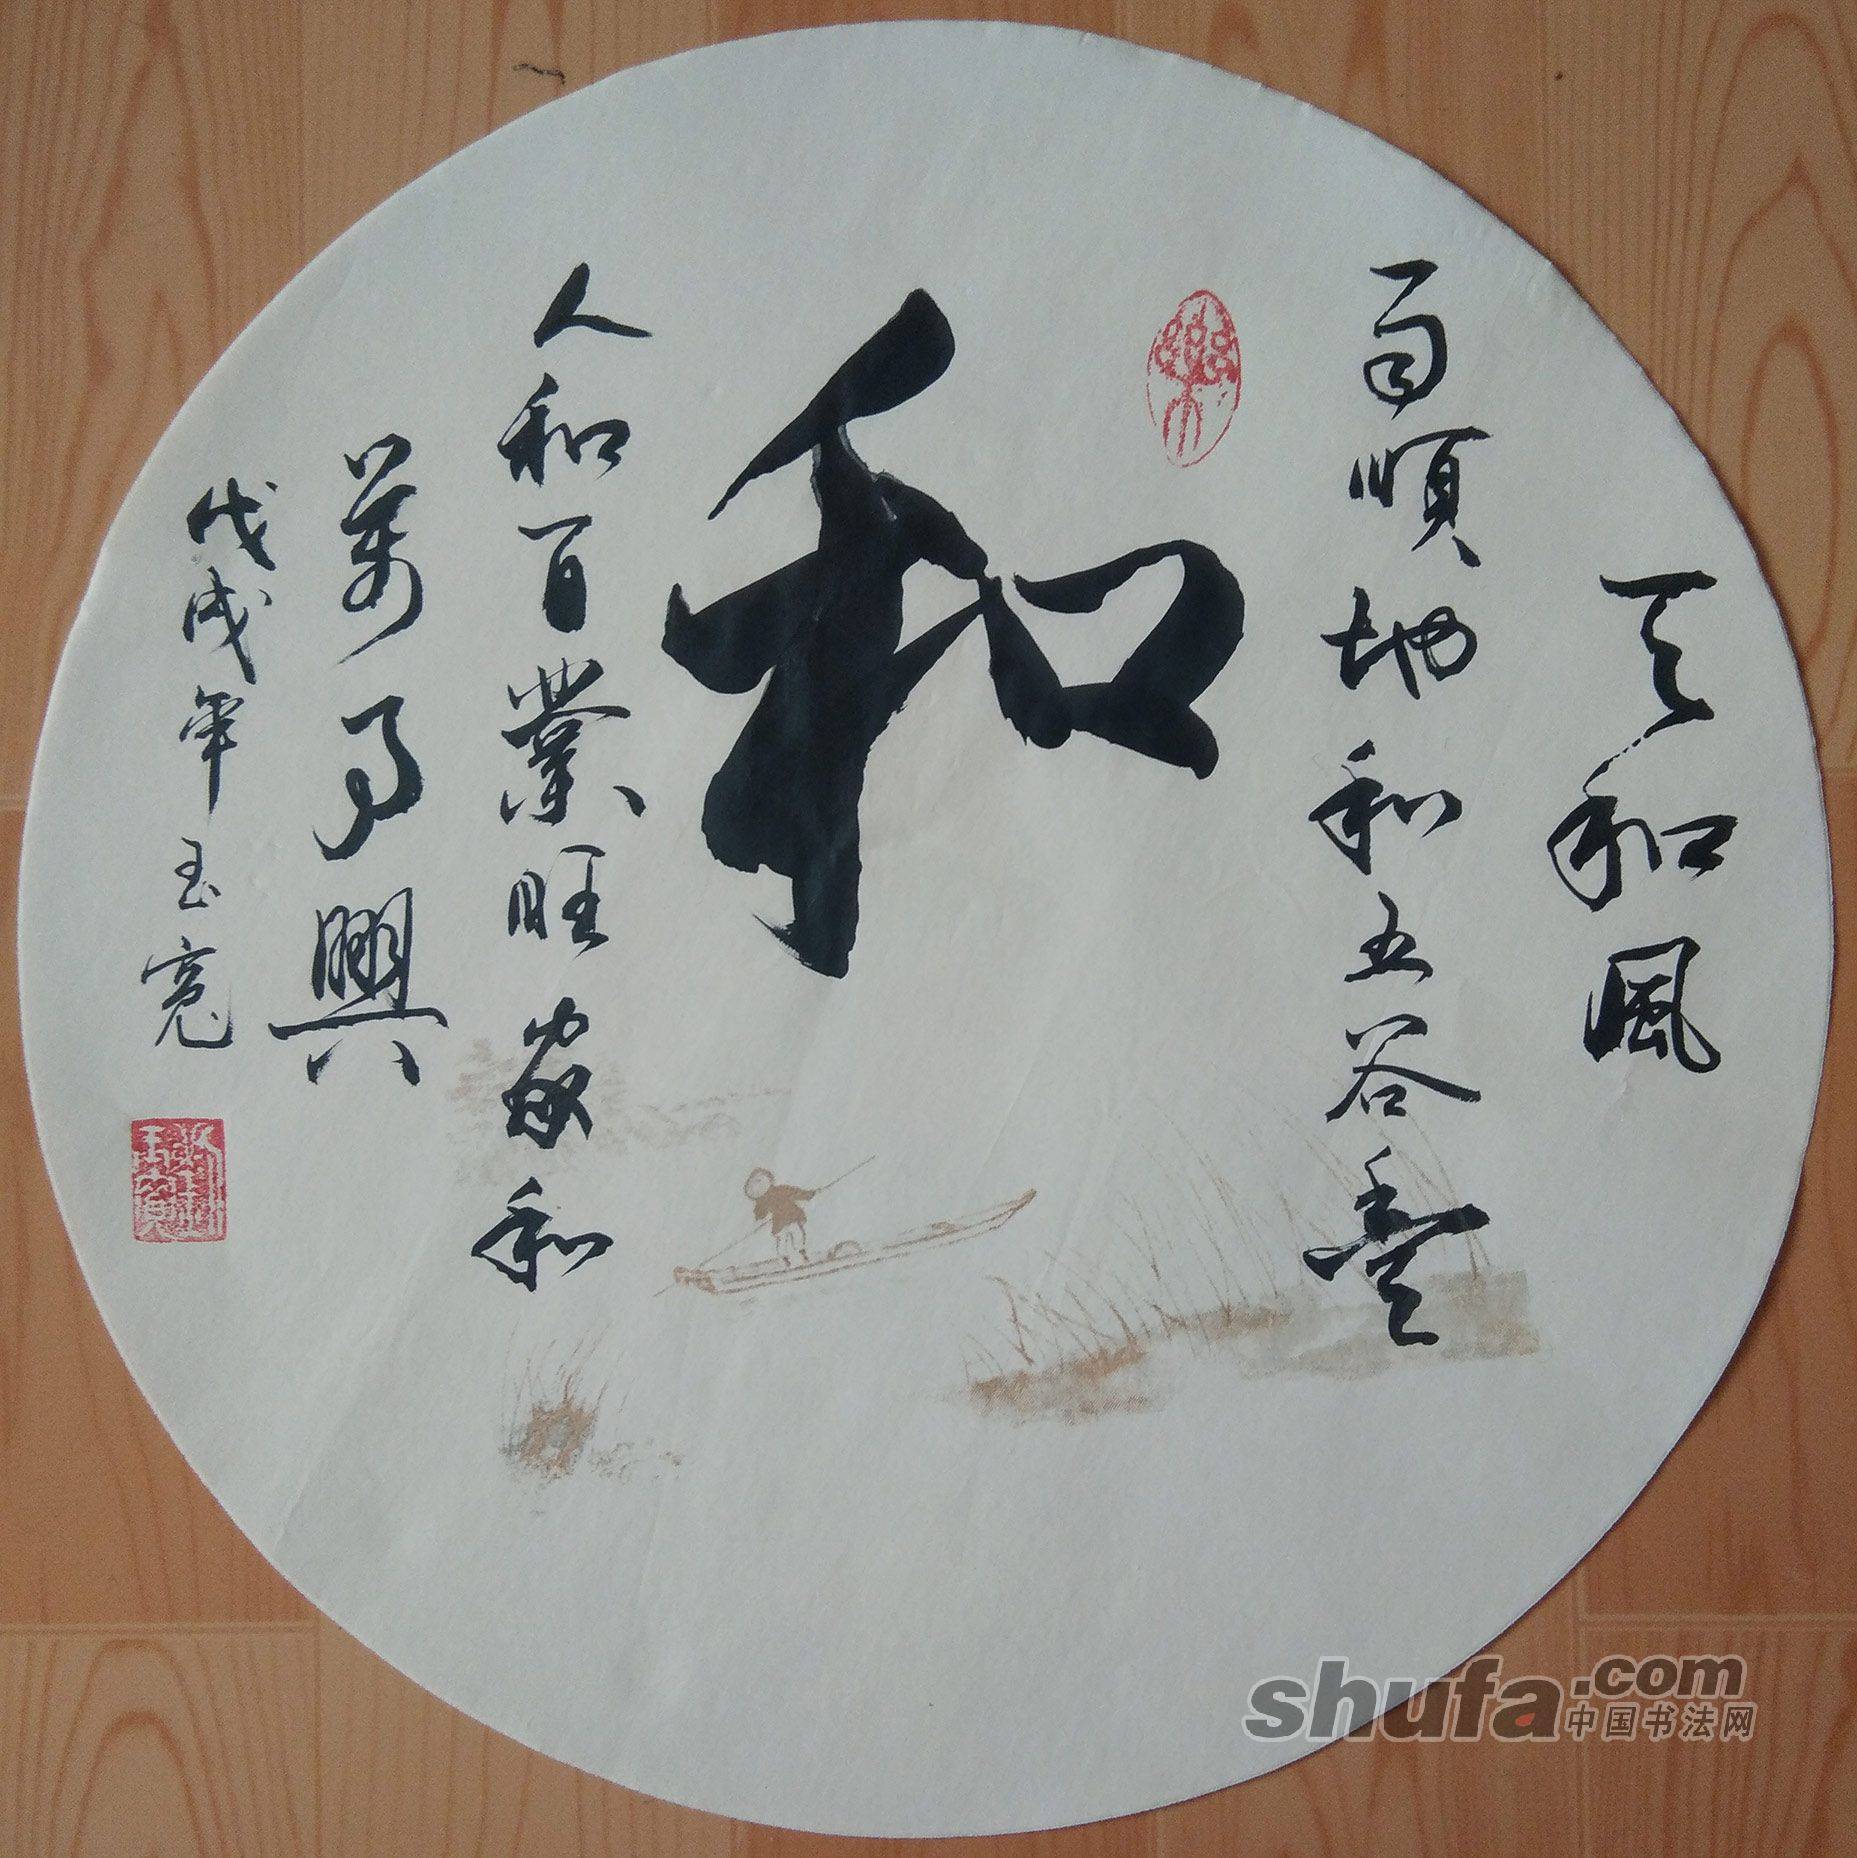 天和風
雨順地和五谷豐
和
人和百業旺家和
萬事興
戊戌年玉寬
樂
shufa.com
中国书法网